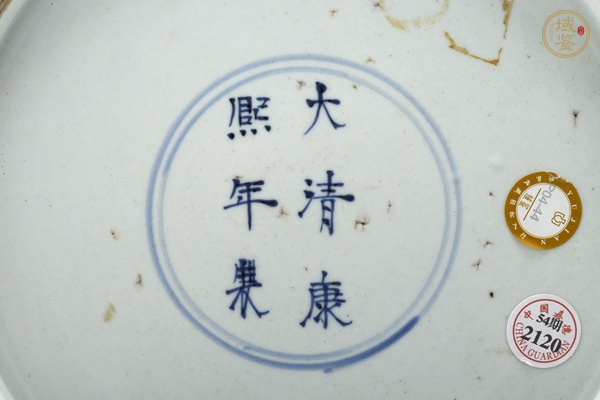 大清康
熙年製
域鉴
504-44
中国嘉德
54期
2120
CHINA GUARDIAN